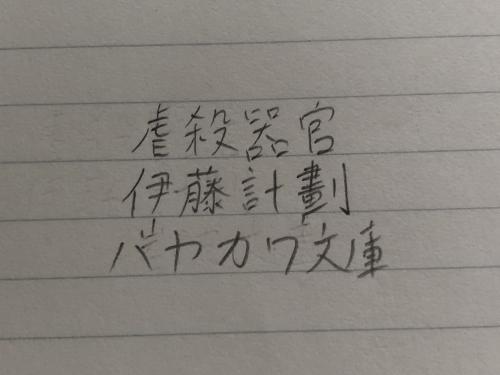 虐殺器官
伊藤計劃
ハヤカワ文庫